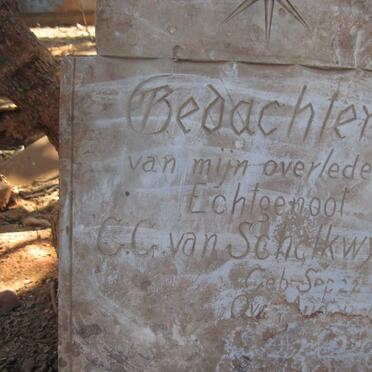 Gedachten
van mijn overlede
Echtgenoot
C.C. van Schalkwy
Geb Sep 22